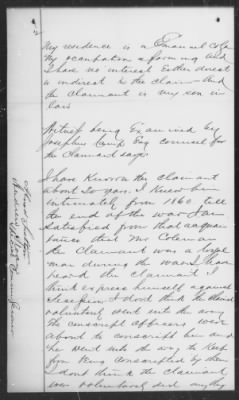 My residence is in Emanuel Co Ga
My occupation a farming and
I have no interest Either direct
or indirect to the claim and
the claimant is my son in
law
Witness being Examined by
Josephus Camp Esq counsel for
the claimant says
I have Known the claimant
about 20 years. I knew him
intimately from 1860 till
the end of the war I am
satisfied from that acquain
tance that Mr Coleman
the claimant was a loyal
man during the war I have
heard the claimant I
think express himself against
Secession I dont think the claimt
voluntarily went into the army
The conscript officers were
about to conscript him and
he went into the army to Keep
from being conscripted by them
I dont think the claimant
ever voluntarily did anything
Special Commissioner